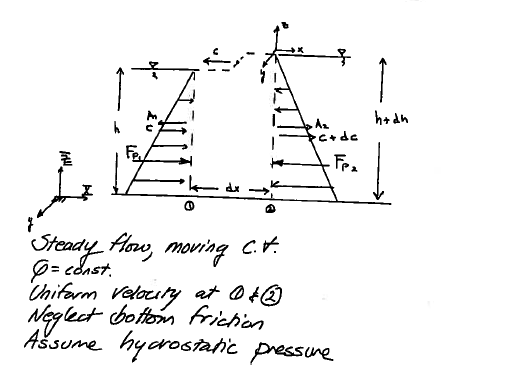 z
c
x
y
A₁
c
A₂
c + dc
h
h + dh
Fp₁
Fp₂
dx
z
x
y
① ②
Steady flow, moving C.V.
φ = const.
Uniform velocity at ① & ②
Neglect bottom friction
Assume hydrostatic pressure